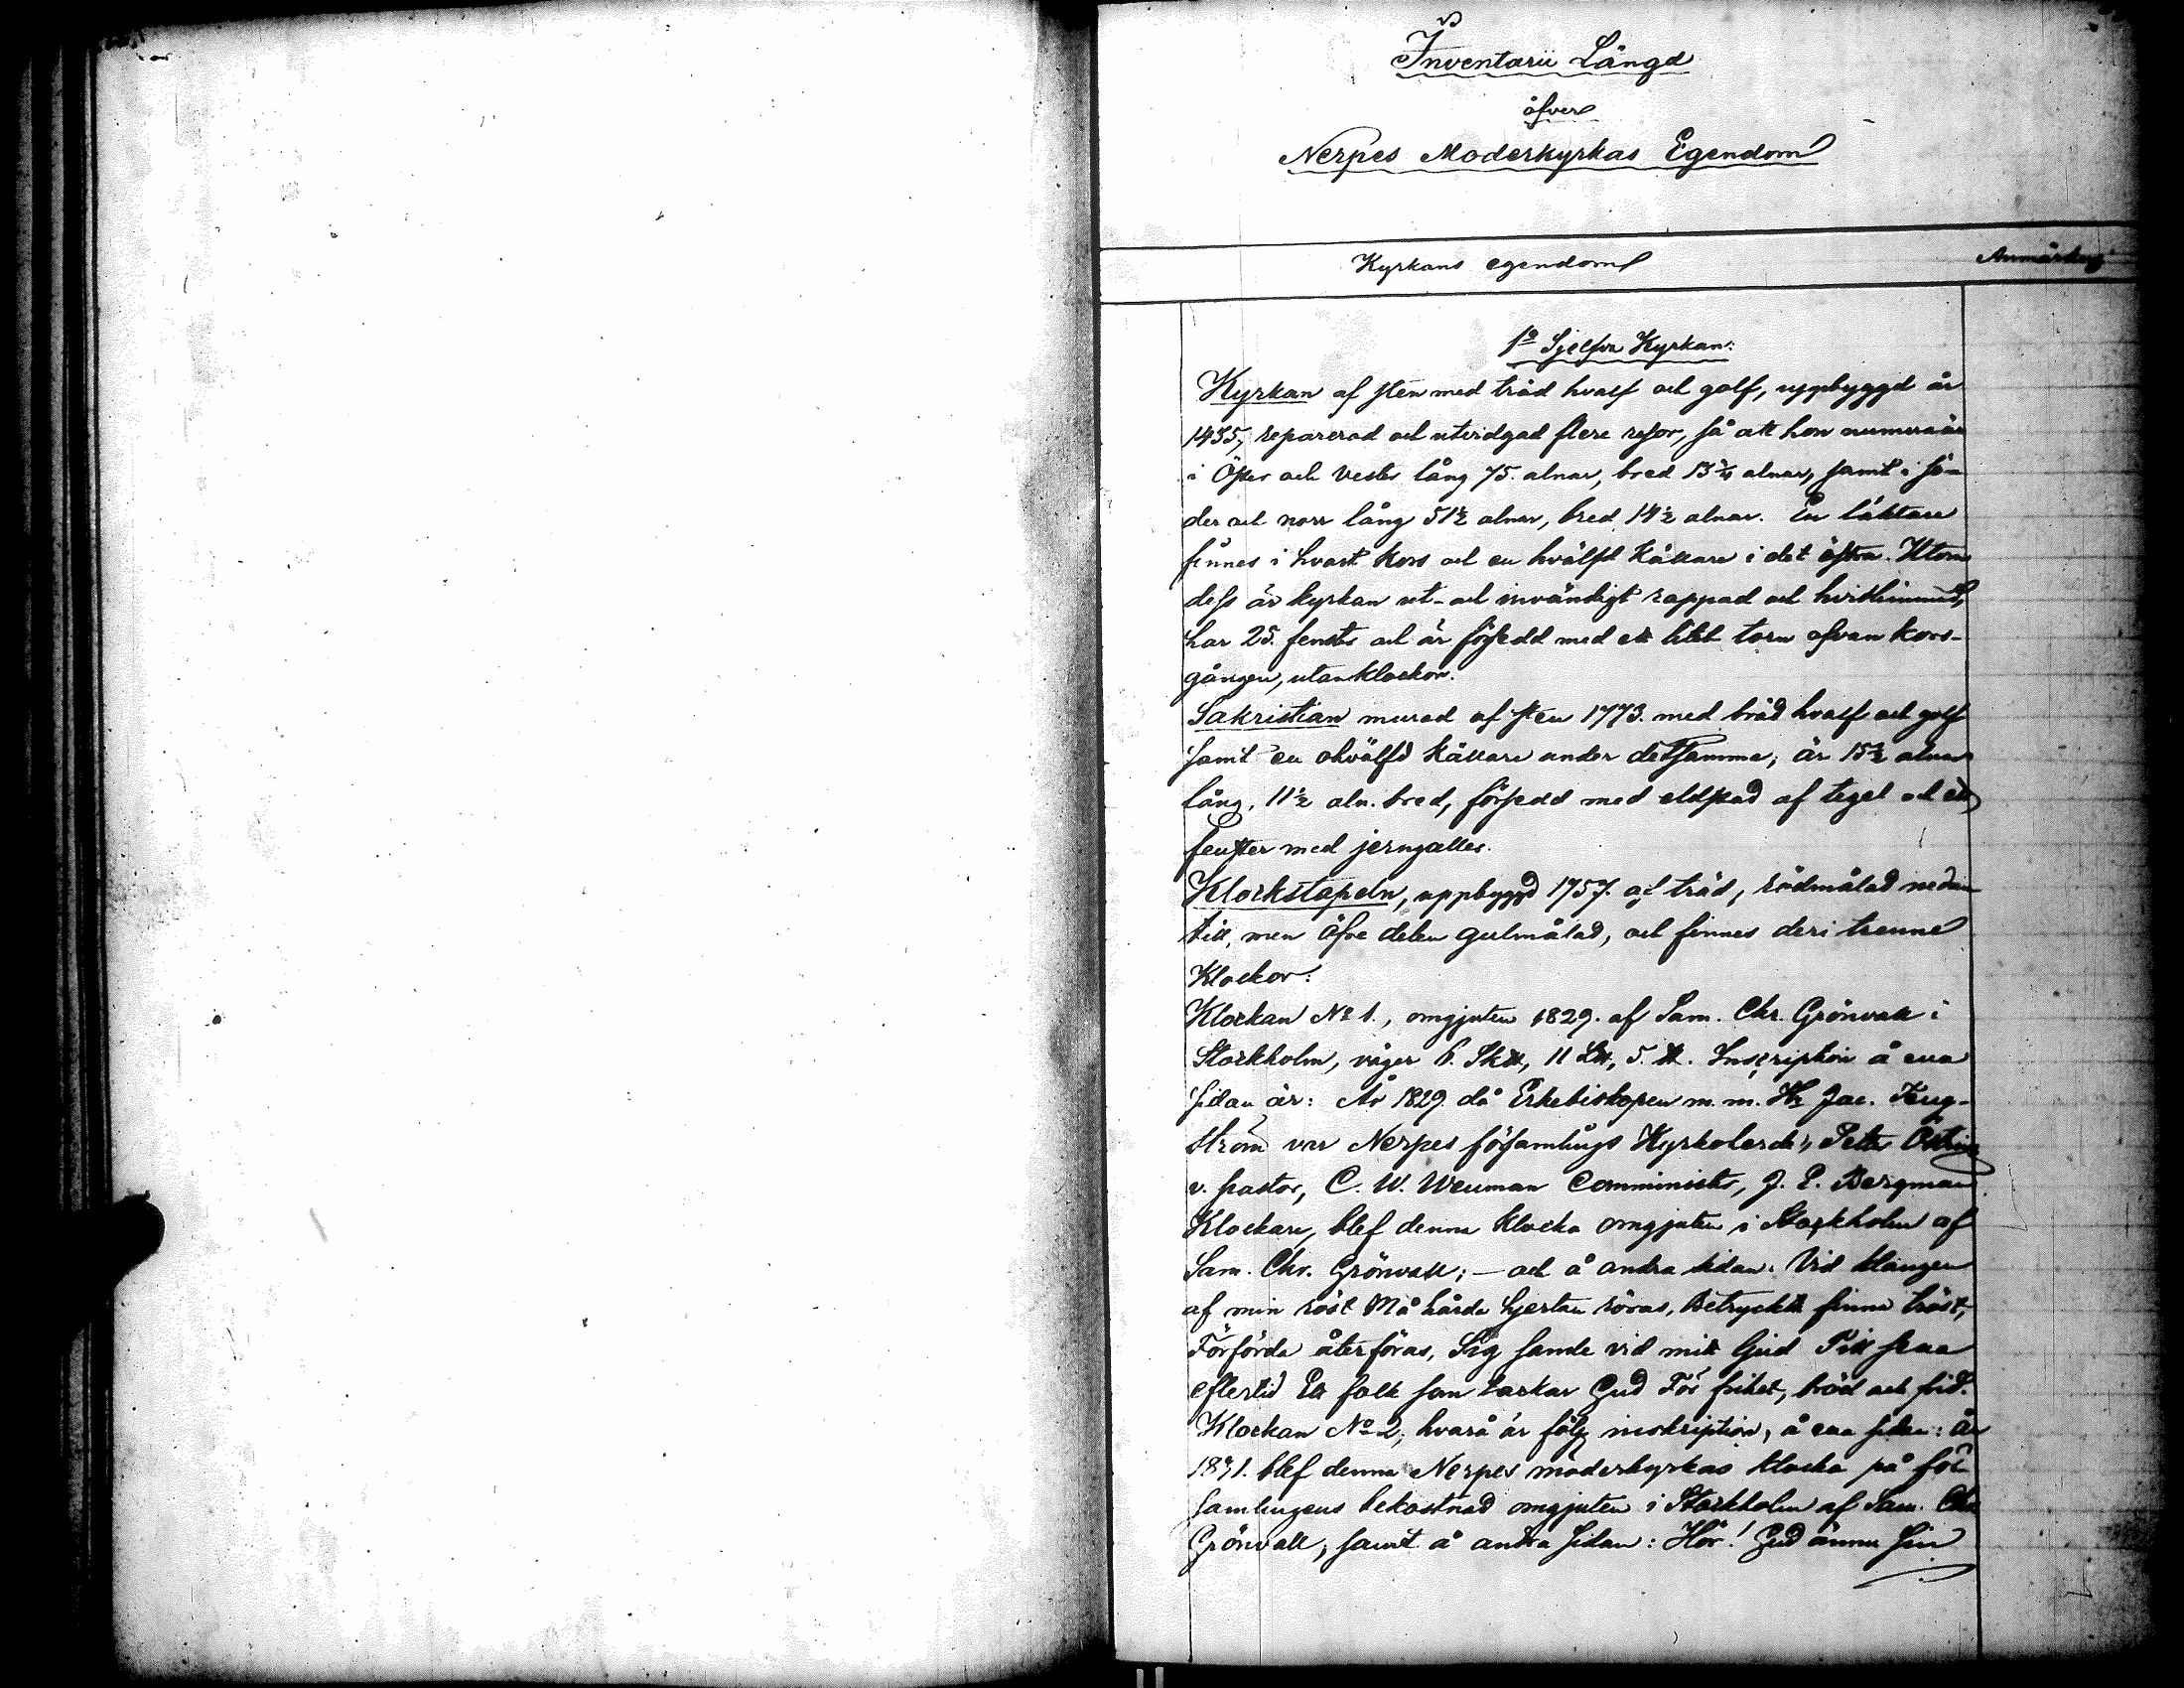 Inventarii Längd
öfver
Nerpes Moderkyrkas Egendom
Kyrkans egendom Anmärkng
1º Sjelfva Kyrkan:
Kyrkan af sten med träd hvalf och golf, uppbyggd år
1435, reparerad och utvidgad flere resor, så att hon numera är
i Öster och Vester lång 75. alnar, bred 13¼ alnar, samt i sö-
der och norr lång 51½ alnar, bred 14½ alnar. En läktare
finnes i hvart kors och en hvälfd källare i det östra. Utom
dess är kyrkan ut- och invändigt rappad och hvitlimmad,
har 25. fenster och är försedd med ett litet torn ofvan kors-
gången, utan klockor.
Sakristian murad af sten 1773. med träd hvalf och golf
samt en ohvälfd källare under detsamma, är 15½ alnar
lång, 11½ aln. bred, försedd med eldstad af tegel och ett
fenster med jerngaller.
Klockstapeln, uppbyggd 1757. af träd, rödmålad nedan
till, men öfre delen gulmålad, och finnes deri trenne
Klockor:
Klockan № 1., omgjuten 1829. af Sam. Chr. Grönvall i
Stockholm, väger 6. Sk℔, 11 L℔, 5. ℔. Inscription å ena
sidan är: År 1829. då Erkebiskopen m. m. Hr Jac. Teng-
ström var Nerpes församlings Kyrkoherde, Petter Östring
v. pastor, C. W. Wenman Comminister, J. E. Bergman
Klockare, blef denna klocka omgjuten i Stockholm af
Sam. Chr. Grönvall; — och å andra sidan: Vid klangen
af min röst Må hårda hjertan röras, Betryckta finna tröst,
Förförda återföras, Sig samle vid mitt ljud Till sena
eftertid Ett folk som tackar Gud För frihet, bröd och frid.
Klockan № 2, hvarå är följ inskription, å ena sidan: År
1831. blef denna Nerpes moderkyrkas klocka på för
samlingens bekostnad omgjuten i Stockholm af Sam. Chr
Grönvall, samt å andra sidan: Hör! Gud ännu sin